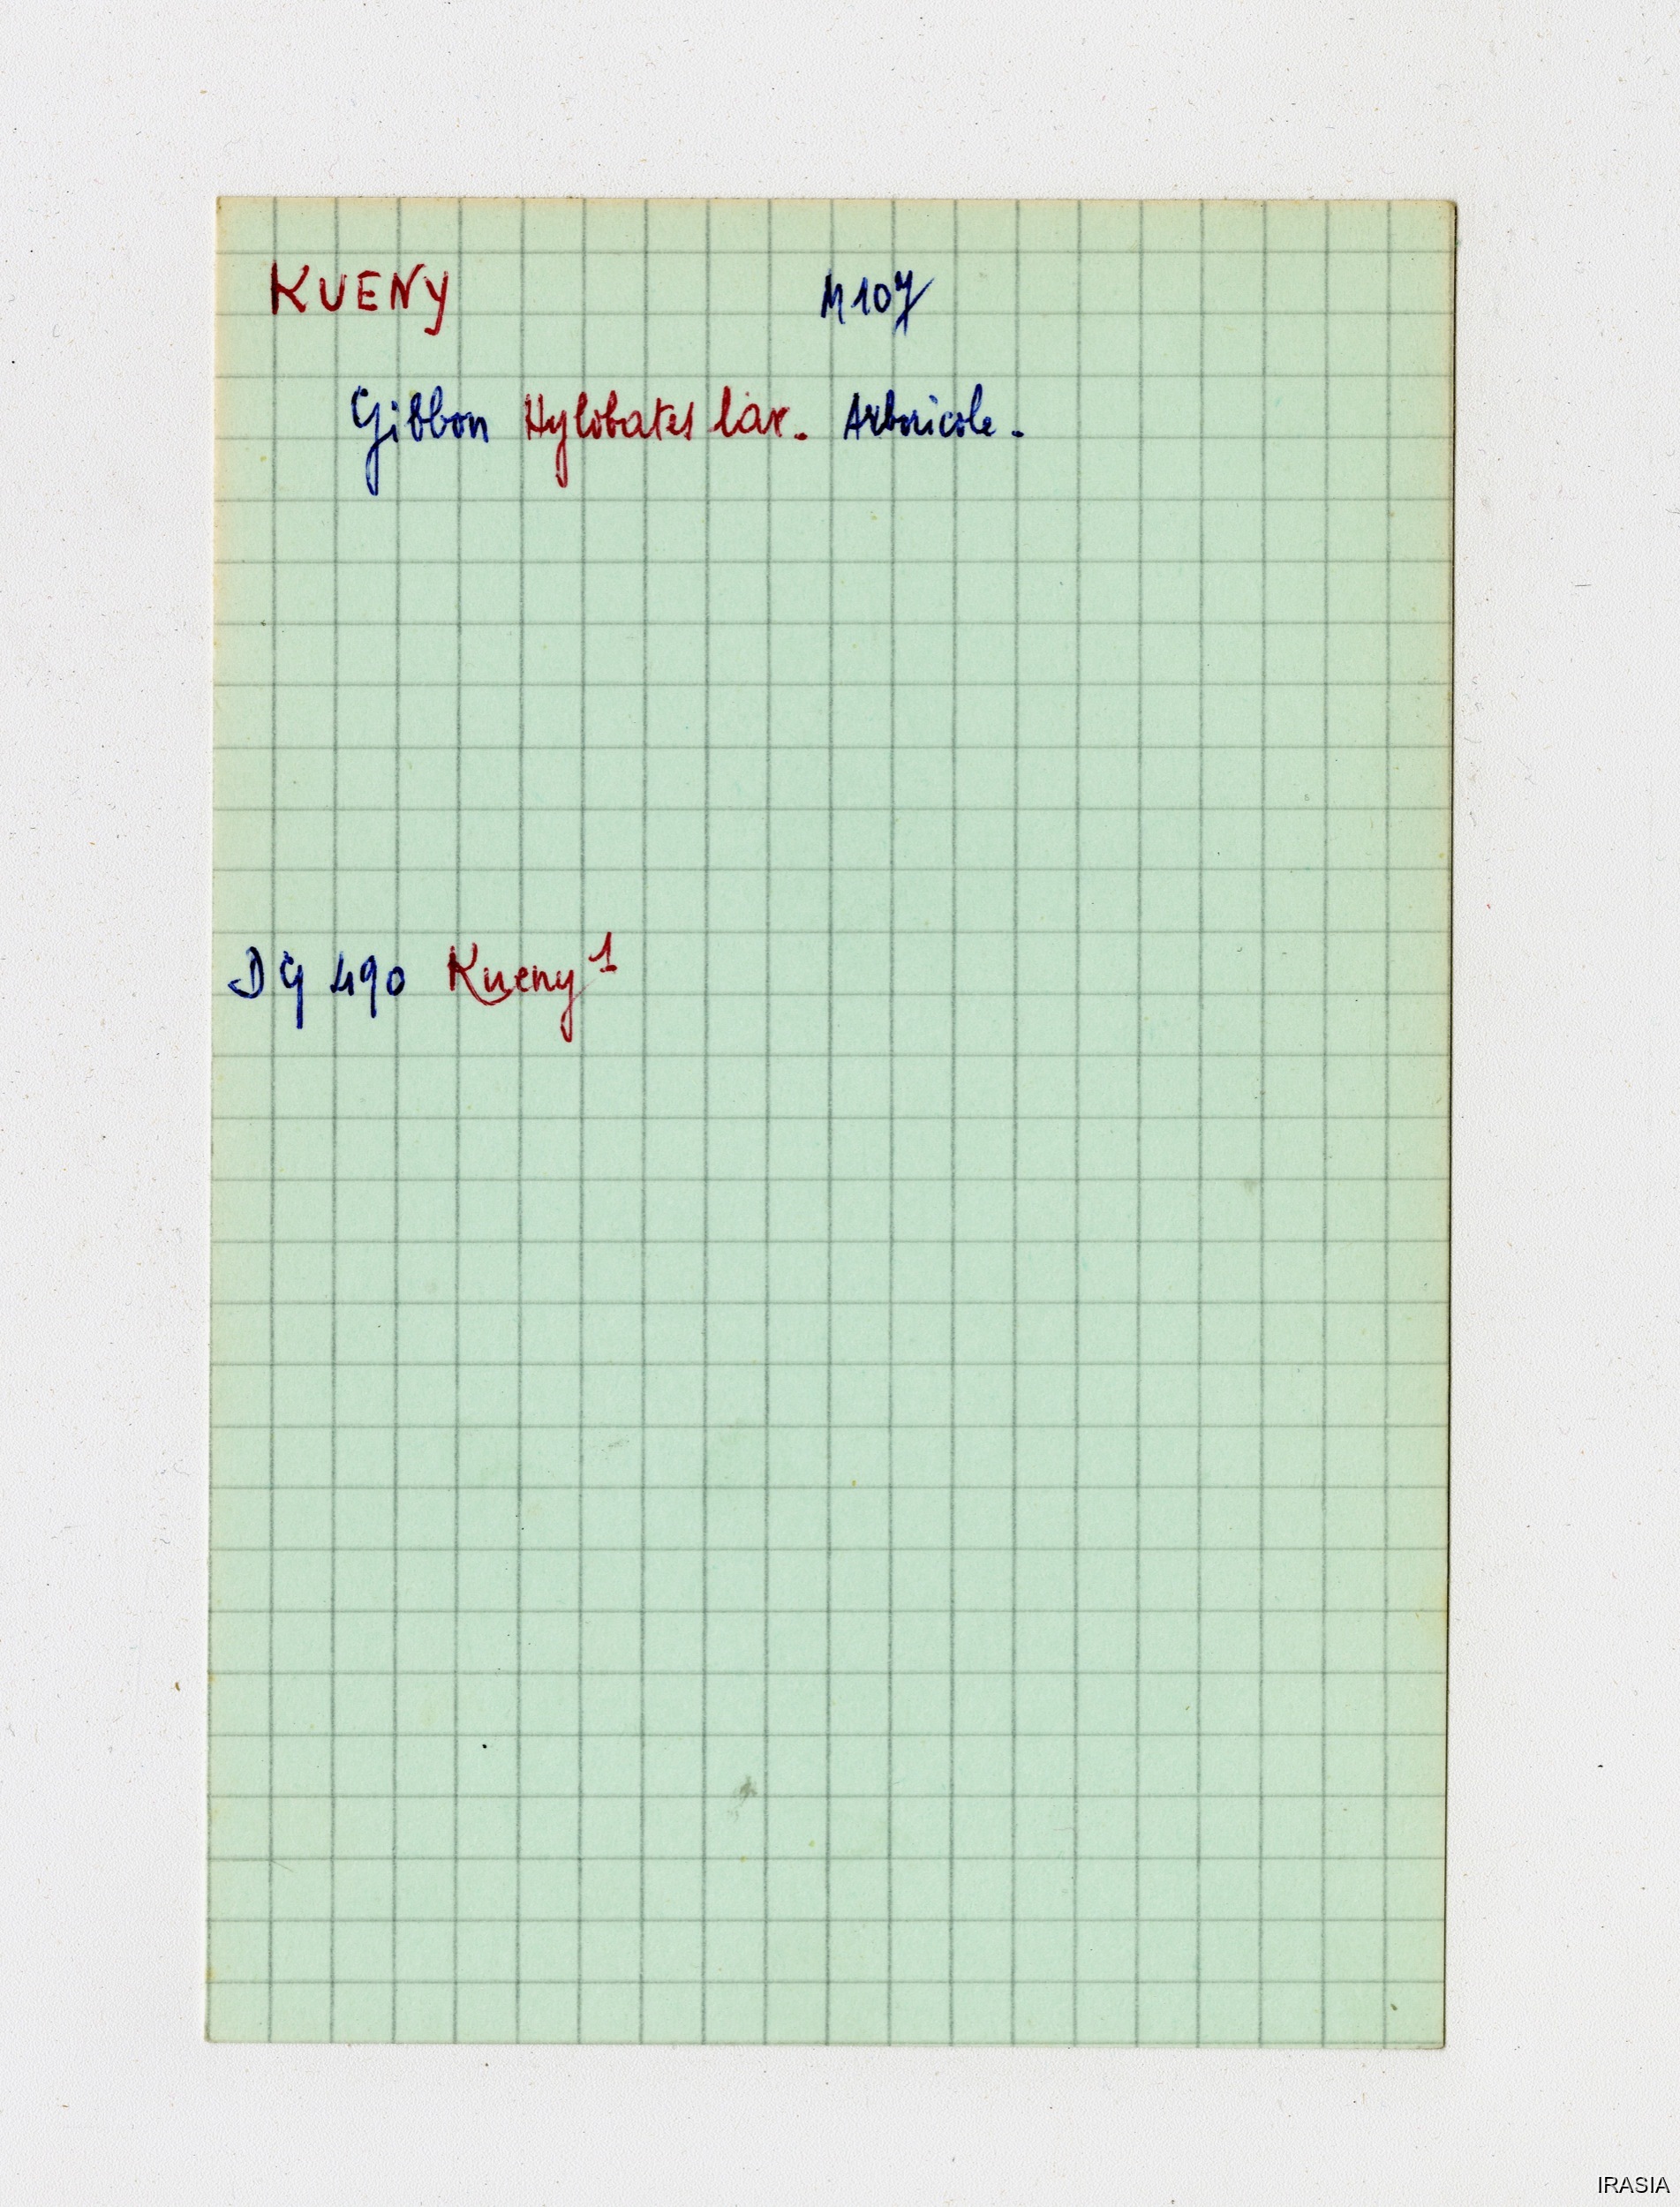 KUENY M107
Gibbon Hylobates lar. Arboricole.
DG 490 Kueny 1
IRASIA